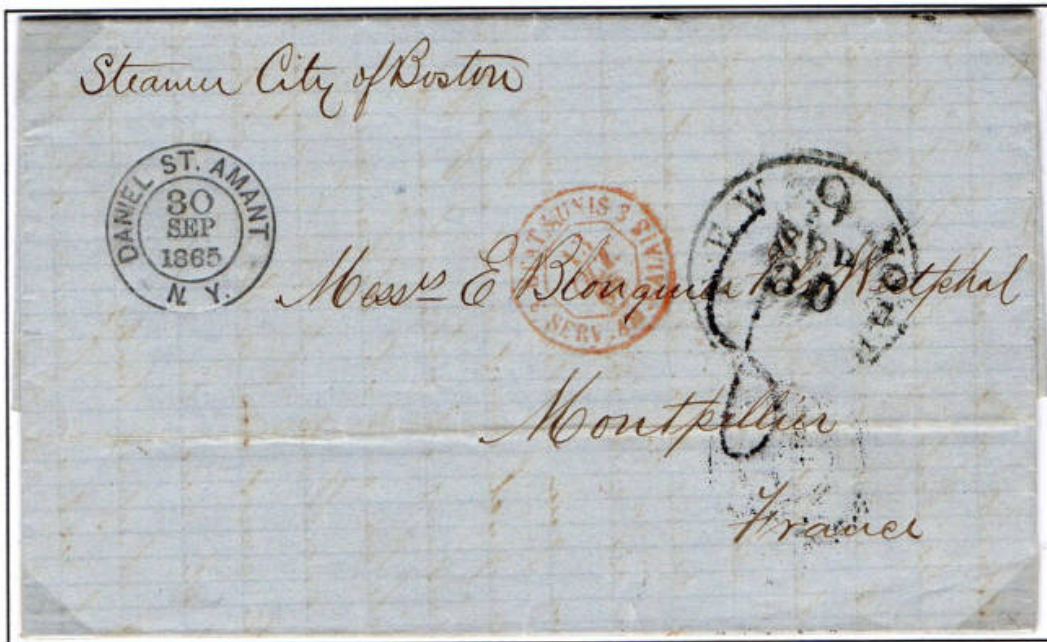 Steamer City of Boston
DANIEL ST. AMANT
30
SEP
1865
N. Y.
ETATS UNIS
SERV. AM. CALAIS
NEW YORK
9
SEP
30
Mess​rs E & Westphal
Montpellier
France